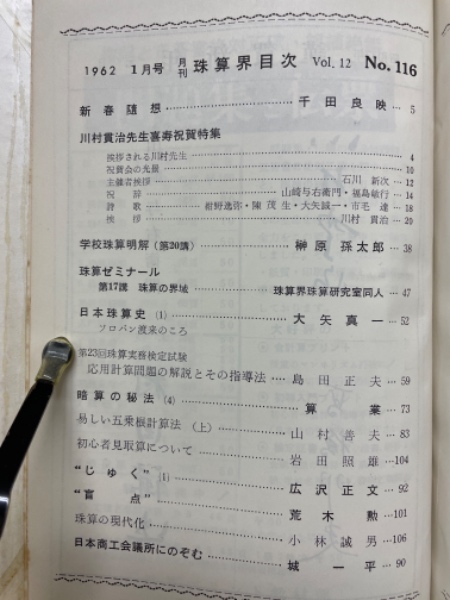 1962 1月号 月刊 珠算界目次 Vol. 12 No. 116
新春随想 千田良映 5
川村貫治先生喜寿祝賀特集
挨拶される川村先生 4
祝賀会の光景 10
主催者挨拶 石川新次 12
祝辞 山崎与右衛門・福島敏行 14
詩歌 紺野逸弥・陳茂生・大矢誠一・市毛達 18
挨拶 川村貫治 20
学校珠算明解(第20講) 榊原孫太郎 38
珠算ゼミナール
第17講 珠算の界域 珠算界珠算研究室同人 47
日本珠算史(1) 大矢真一 52
ソロバン渡来のころ
第23回珠算実務検定試験
応用計算問題の解説とその指導法 島田正夫 59
暗算の秘法(4) 算業 73
易しい五乗根計算法(上) 山村善夫 83
初心者見取算について 岩田照雄 104
“じゅく”(1) 広沢正文 92
“盲点” 荒木勲 101
珠算の現代化 小林誠男 106
日本商工会議所にのぞむ 城一平 90